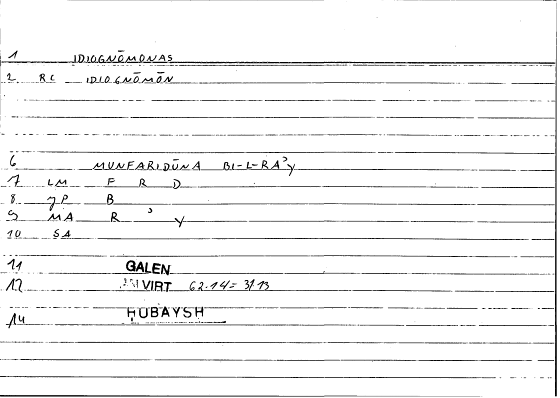 1 IDIOGNŌMONAS
2 RC IDIOGNŌMŌN
6 MUNFARIDŪNA BI-L-RAʾY
7 LM F R D
8 JP B
9 MA R ʾ Y
10 SA
11 GALEN
12 VIRT 62.14 = 3,13
14 ḤUBAYSH